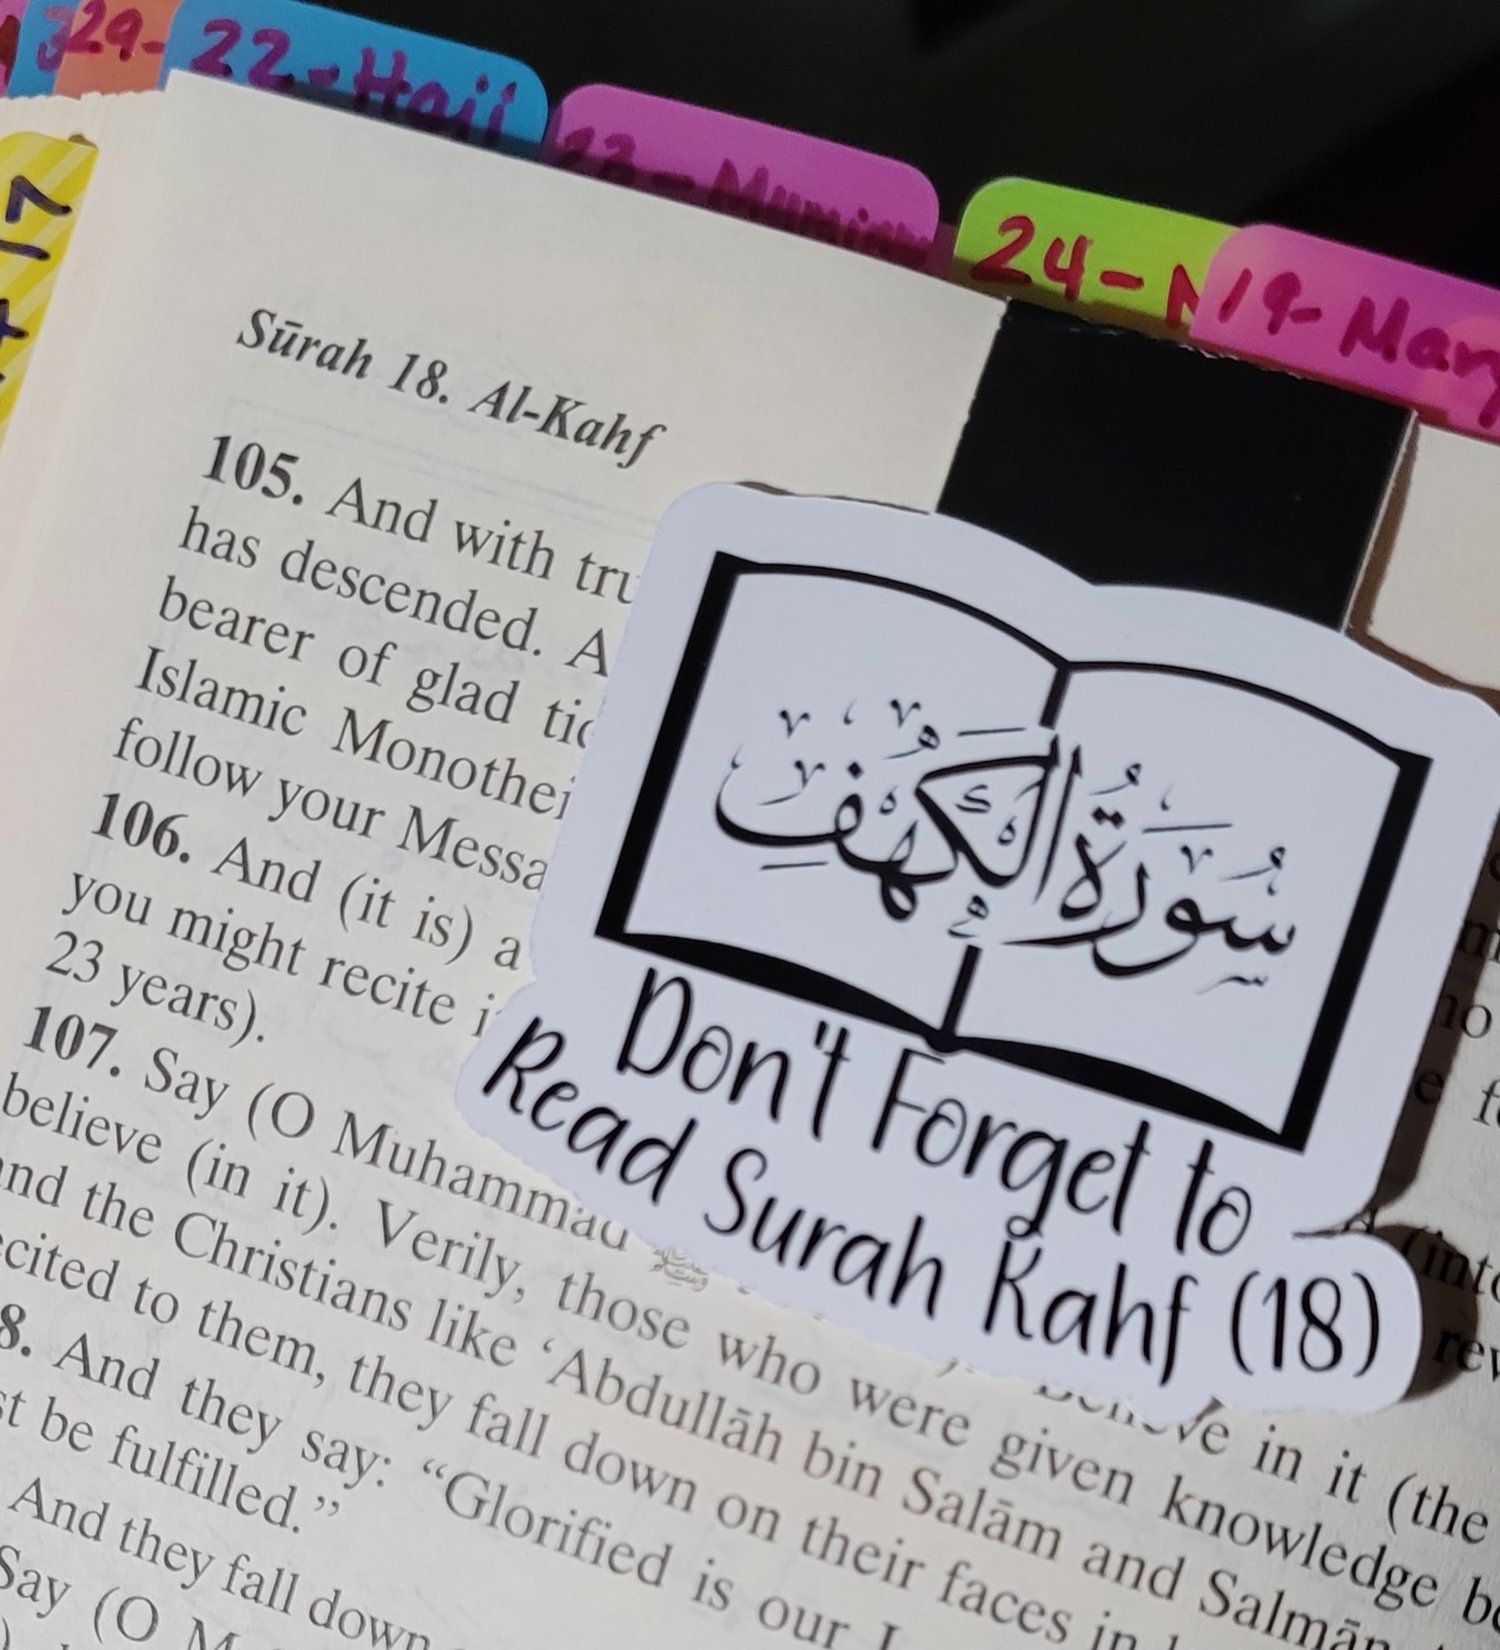 29-
22-Hajj
24-
19-Mary
Sūrah 18. Al-Kahf
105. And with
has descended.
bearer of glad
Islamic
follow your
106. And (it is) a
you might recite
23 years).
107. Say (O Muhammad
believe (in it). Verily, those who were given knowledge
the Christians like ‘Abdullāh bin Salām and
to them, they fall down on their faces in
And they say: “Glorified is our
be fulfilled.”
And they fall down
Say (O
in it (the
سُورَةُ الْكَهْفِ
Don't Forget to
Read Surah Kahf (18)